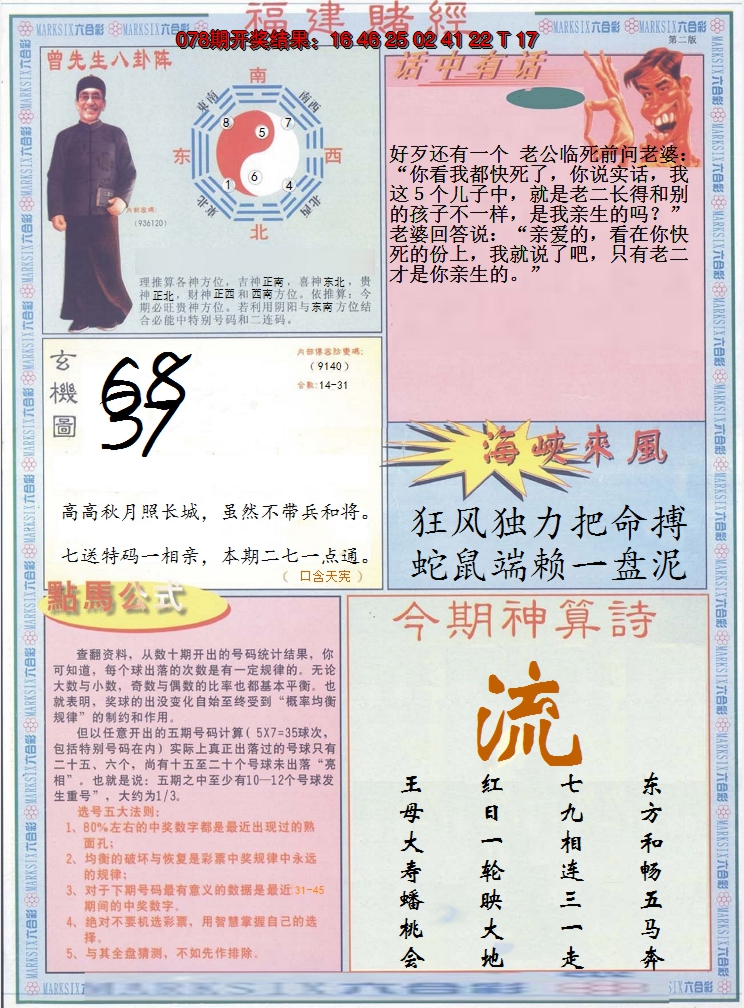 福建賭經
078期开奖结果：16 46 25 02 41 22 T 17
第二版
MARKSIX六合彩
曾先生八卦阵
南
东南
西南
东
西
东北
西北
北
8
5
7
1
6
4
内部密碼：
（936120）
理推算各神方位，吉神正南，喜神东北，贵
神正北，财神正西和西南方位。依推算：今
期必旺贵神方位。若利用阴阳与东南方位结
合必能中特别号码和二连码。
话中有话
好歹还有一个 老公临死前问老婆：
“你看我都快死了，你说实话，我
这５个儿子中，就是老二长得和别
的孩子不一样，是我亲生的吗？”
老婆回答说：“亲爱的，看在你快
死的份上，我就说了吧，只有老二
才是你亲生的。”
玄機圖
68
37
内部傳密防變碼：
（9140）
合数：14-31
高高秋月照长城，虽然不带兵和将。
七送特码一相亲，本期二七一点通。
（ 口含天宪 ）
海峽來風
狂风独力把命搏
蛇鼠端赖一盘泥
點馬公式
查翻资料，从数十期开出的号码统计结果，你
可知道，每个球出落的次数是有一定规律的。无论
大数与小数，奇数与偶数的比率也都基本平衡。也
就表明，奖球的出没变化自始至终受到“概率均衡
规律”的制约和作用。
但以任意开出的五期号码计算（5X7=35球次，
包括特别号码在内）实际上真正出落过的号球只有
二十五、六个，尚有十五至二十个号球未出落“亮
相”。也就是说：五期之中至少有10—12个号球发
生重号”，大约为1/3。
选号五大法则：
1、80%左右的中奖数字都是最近出现过的熟
面孔；
2、均衡的破坏与恢复是彩票中奖规律中永远
的规律；
3、对于下期号码最有意义的数据是最近31-45
期间的中奖数字。
4、绝对不要机选彩票，用智慧掌握自己的选
择。
5、与其全盘猜测，不如先作排除。
今期神算詩
流
东方和畅五马奔
七九相连三一走
红日一轮映大地
王母大寿蟠桃会